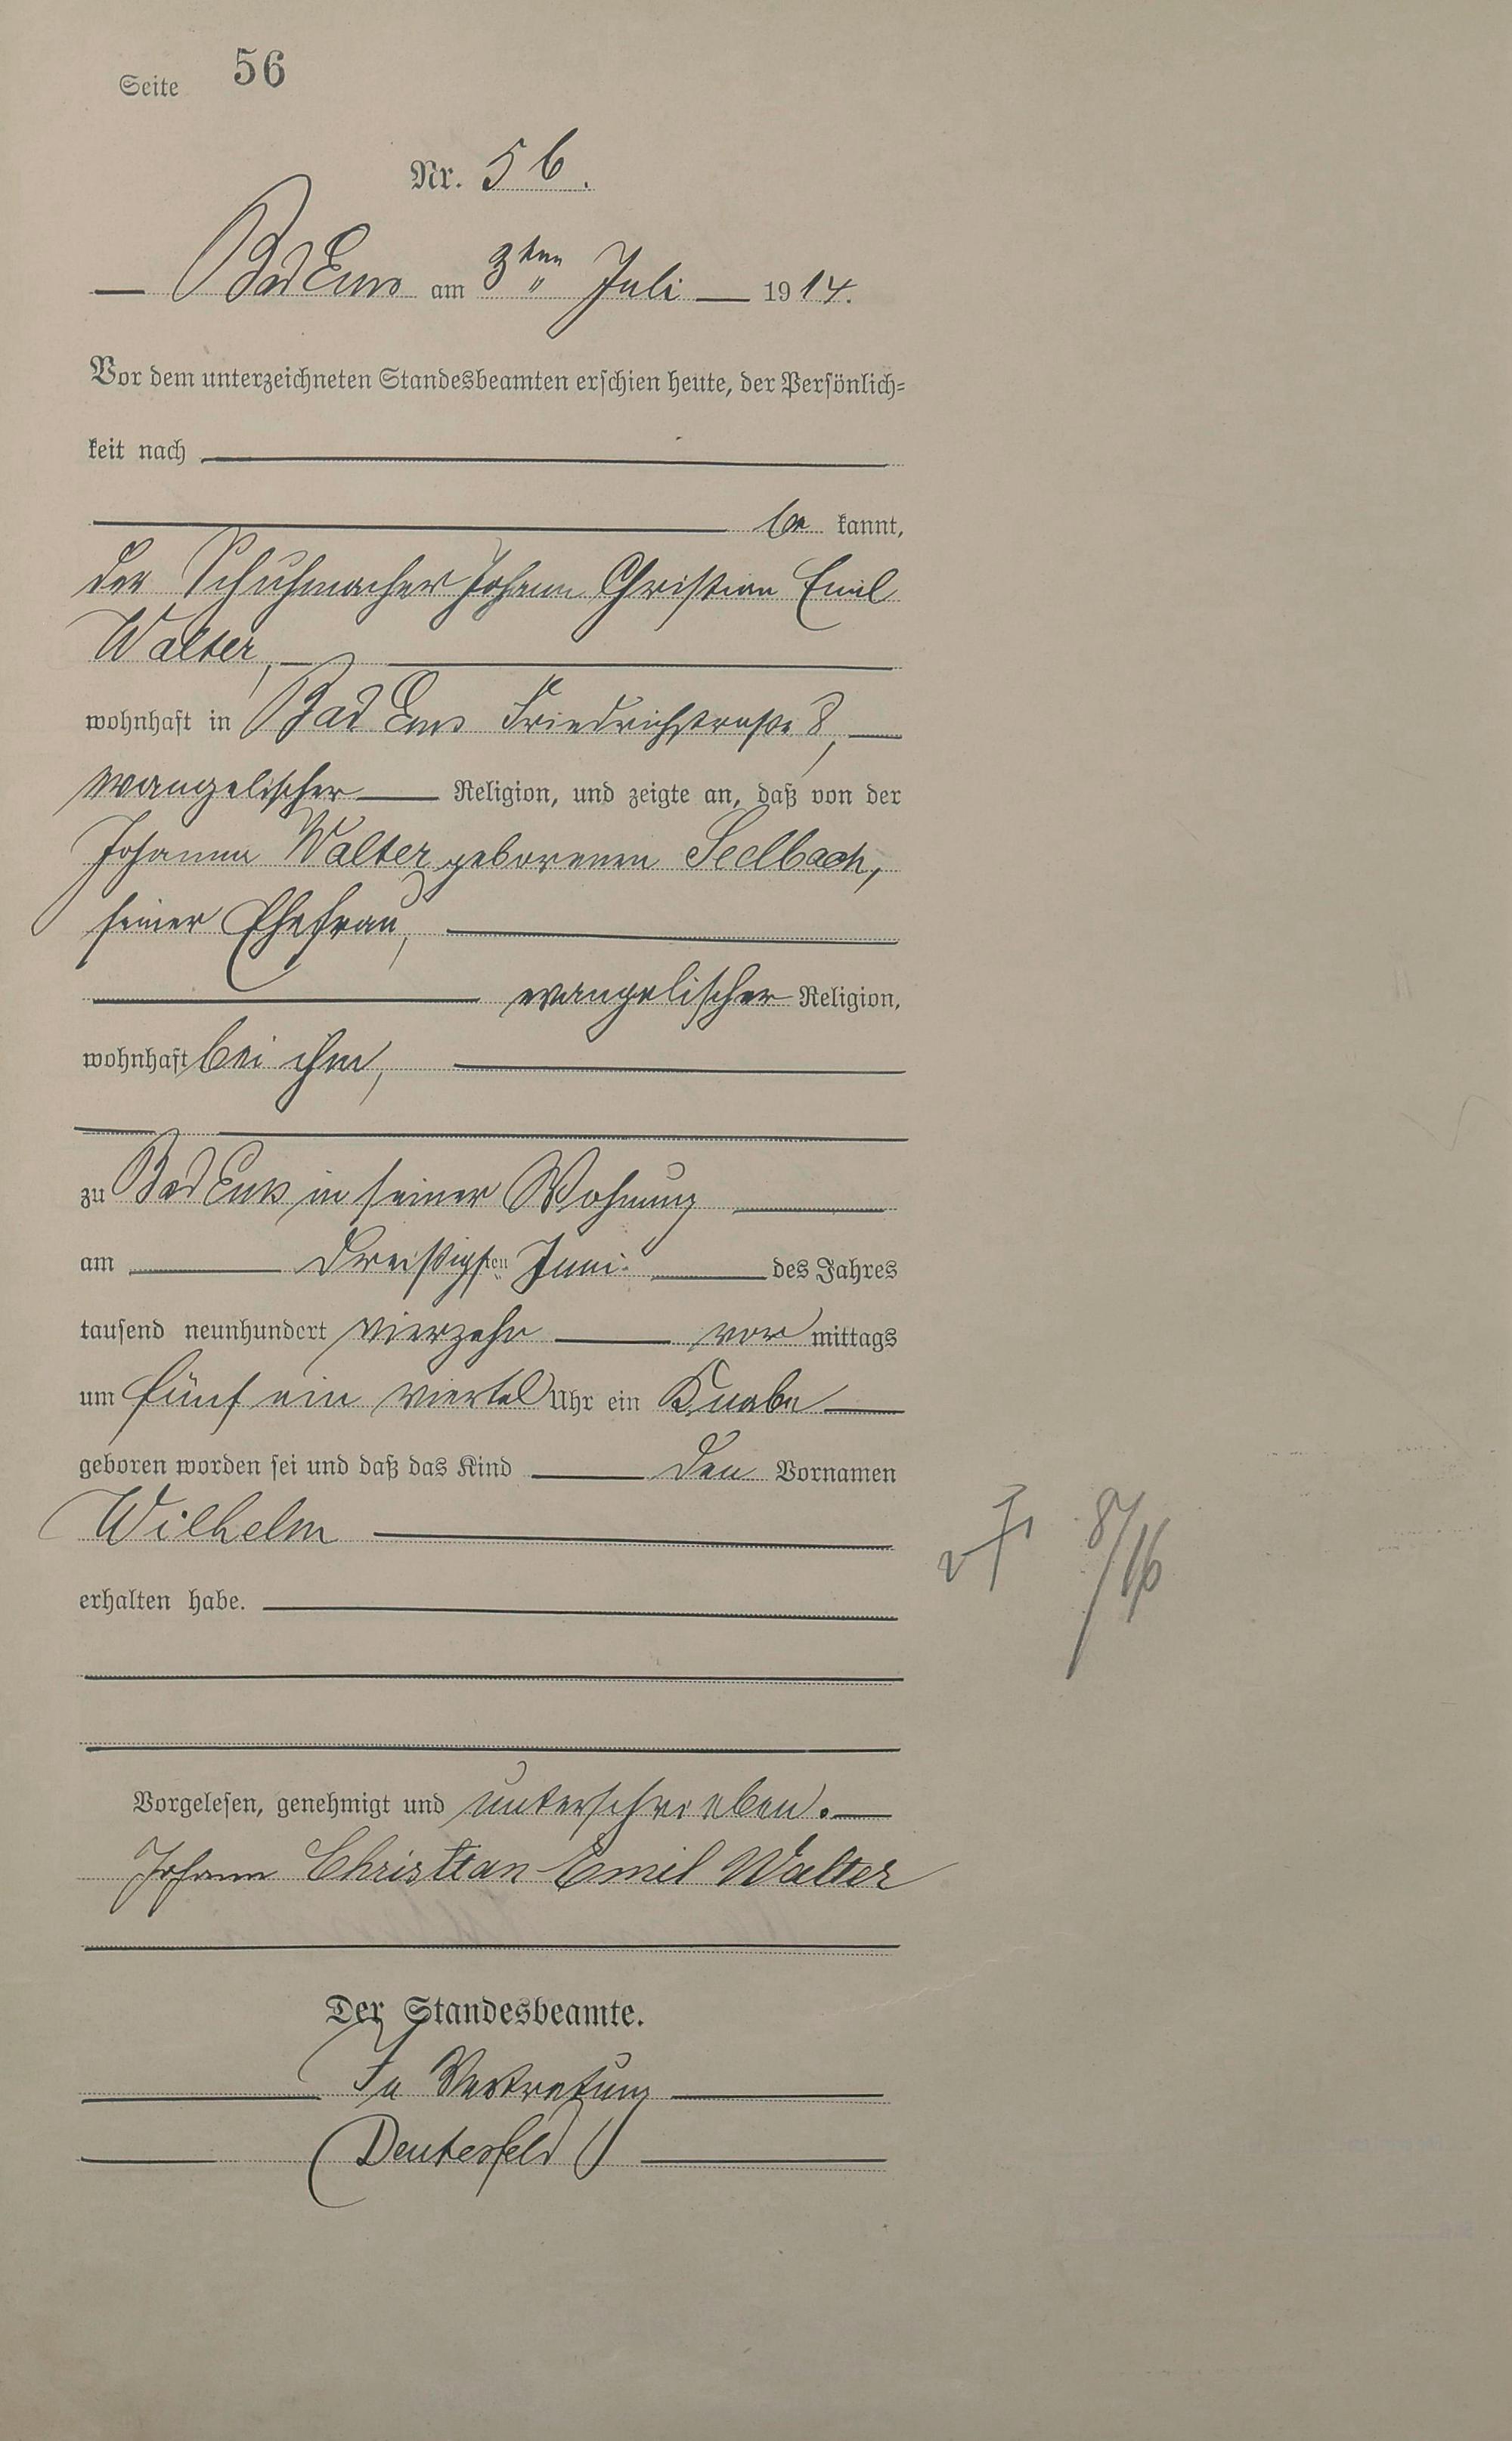 Seite 56
Nr. 56.
Bad Ems am 3ten Juli 1914.
Vor dem unterzeichneten Standesbeamten erschien heute, der Persönlich-
keit nach
be kannt,
der Schuhmacher Johann Christian Emil
Walter,
wohnhaft in Bad Ems Friedrichstraße 8,
evangelischer Religion, und zeigte an, daß von der
Johanna Walter geborenen Seelbach,
seiner Ehefrau,
evangelischer Religion,
wohnhaft bei ihm,
zu Bad Ems in seiner Wohnung
am Dreißigsten Juni des Jahres
tausend neunhundert vierzehn vor mittags
um fünf ein viertel Uhr ein Knabe
geboren worden sei und daß das Kind den Vornamen
Wilhelm
8/16
erhalten habe.
Vorgelesen, genehmigt und unterschrieben.
Johann Christian Emil Walter
Der Standesbeamte.
In Vertretung
Deutesfeld